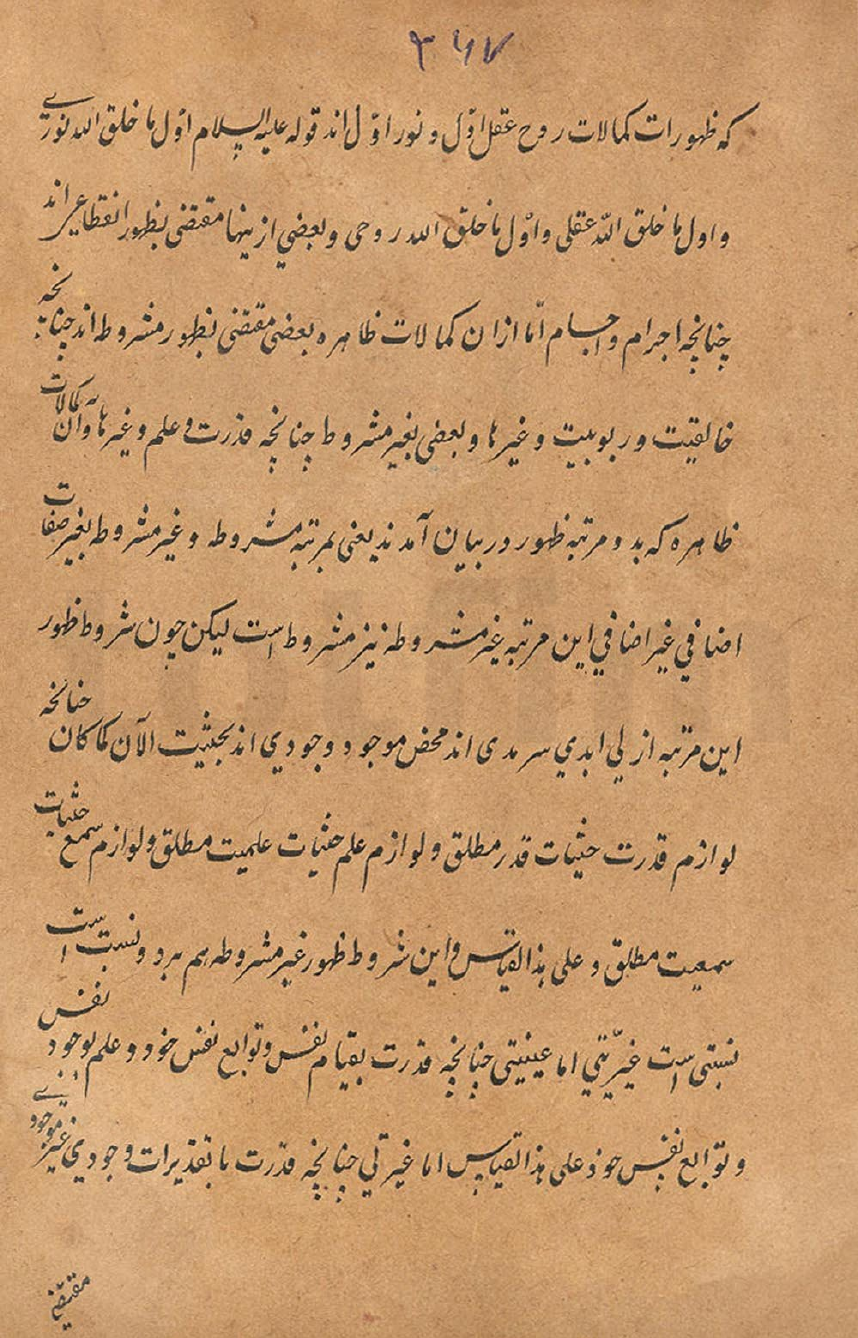 ۳۶۷
که ظهورات کمالات روح عقل اوّل و نور اوّل اند قوله علیه السلام اوّل ما خلق الله نوری
و اول ما خلق اللّه عقلی و اوّل ما خلق الله روحی و بعضي ازینها مقتضی بظهور انقطاعیر اند
چنانچه اجرام و اجسام امّا ازان کمالات ظاهره بعضی مقتضی بظهور مشروطه اند چنانچه
خالقیت و ربوبیت و غیرها و بعضی بغیر مشروط چنانچه قدرت و علم و غیرها و آن کمالات
ظاهره که بدو مرتبه ظهور در بیان آمدند یعنی بمرتبه مشروطه و غیر مشروطه بغیر صفات
اضافي غیر اضافي این مرتبه غیر مشروطه نیز مشروط است لیکن چون شروط ظهور
این مرتبه ازلي ابدي سرمدی اند محض موجود وجودي اند بحیثیت الآن کما کان چنانچه
لوازم قدرت حیثیات قدر مطلق و لوازم علم حیثیات علمیت مطلق و لوازم سمع حیثیات
سمعیت مطلق و علی هذا القیاس و این شروط ظهور غیر مشروطه هم بدو نسبت است
نسبتی است غیریّتي اما عینیتی چنانچه قدرت بقیام نفس و توابع نفس خود و علم بوجود نفس
و توابع نفس خود علی هذا القیاس اما غیرتي چنانچه قدرت با تقدیرات وجودي غیر موجودی
مقتضی